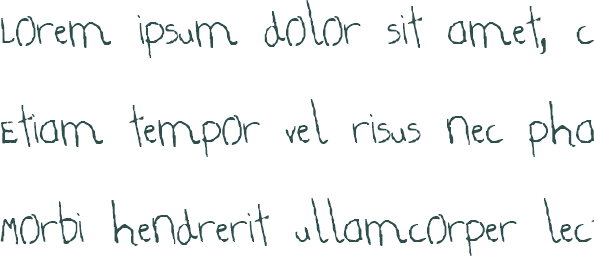 Lorem ipsum dolor sit amet, c
Etiam tempor vel risus nec pha
Morbi hendrerit ullamcorper lec